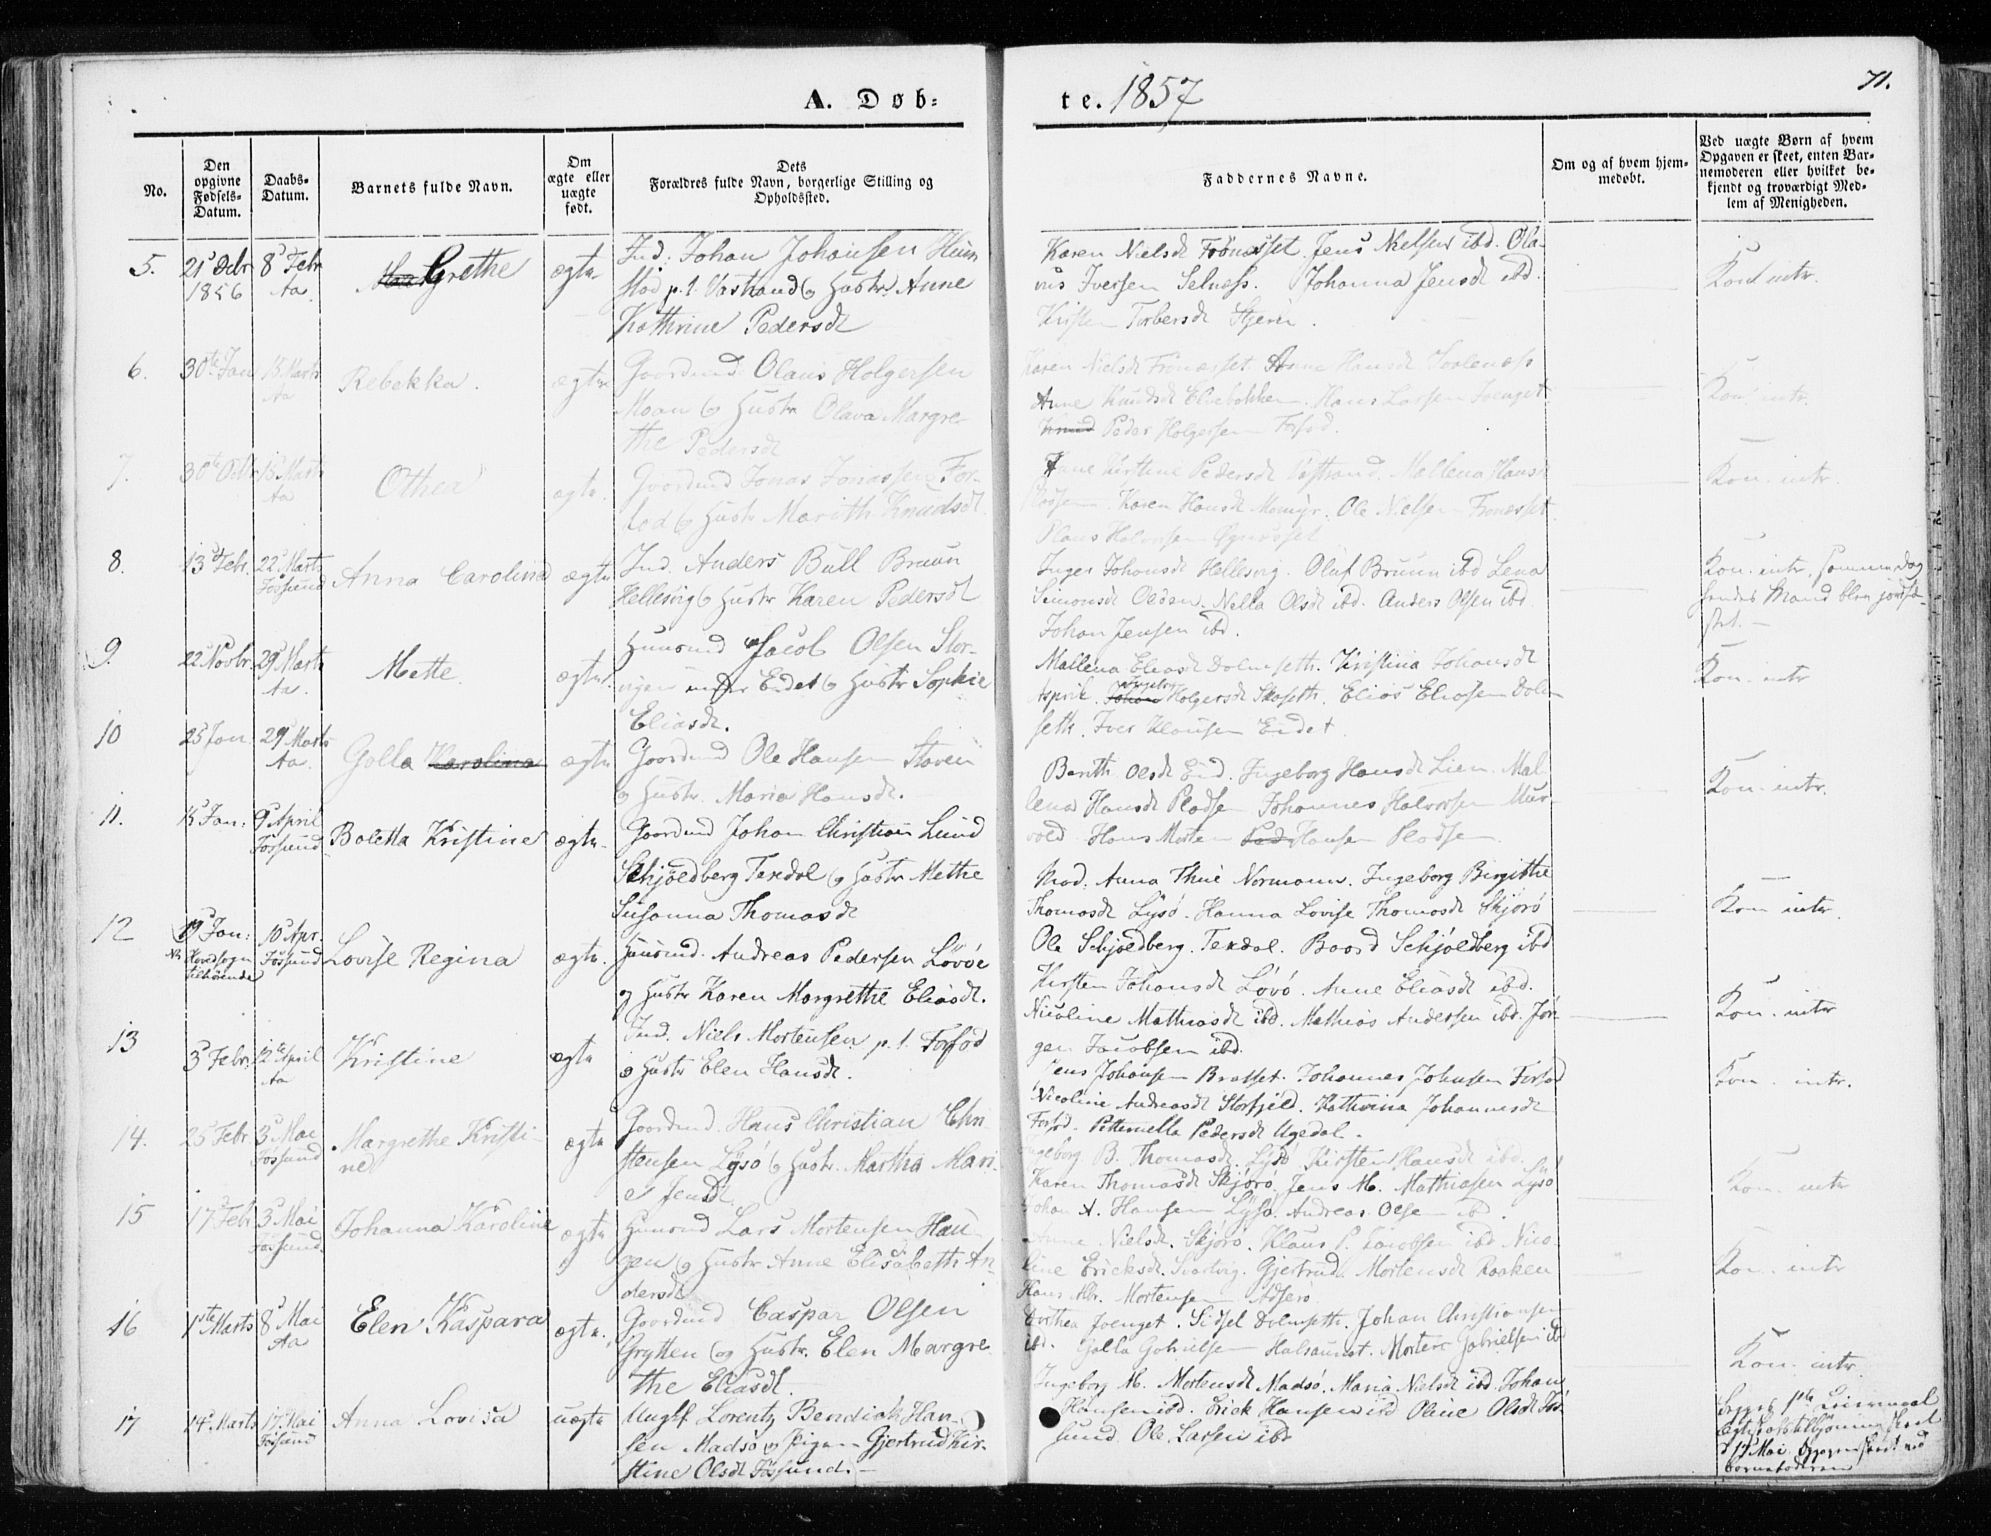 A. Døb-
te. 1857
71.
No.
Den opgivne Fødsels-Datum.
Daabs-Datum.
Barnets fulde Navn.
Om ægte eller uægte født.
Dets Forældres fulde Navn, borgerlige Stilling og Opholdssted.
Faddernes Navne.
Om og af hvem hjem-medøbt.
Ved uægte Børn af hvem Opgaven er skeet, enten Bar-nemoderen eller hvilket be-kjendt og troværdigt Med-lem af Menigheden.
5.
21 Octbr 1856
8 Febr Aa
Grethe
ægte
Ind: Johan Johansen Heim
stod p.t. Vastrand og Hustr. Anne
Kathrine Pedersdt
Karen Nielsdt Frönesset. Jens Nielsen ibd. Ola-
vus Iversen Selness. Johanna Jensdt ibd.
Kristen Torbersdt Stjern.
Kon. intr.
6.
30te Jan
15 Marts Aa
Rebekka.
ægte
Goordmd. Olaus Holgersen
Moan og Hustr Olava Margre-
the Pedersdt
Karen Nielsdt Frönesset. Anne Hansdt
Anne Knudsdt Elvebakken. Hans Larsen Joenget
Peder Holgersen Forfod.
Kon. intr.
7.
30te Octbr
15 Marts Aa
Othea
ægte.
Goordmd Jonas Jonassen For-
fod og Hustr Marith Knudsdt.
Kirstine Pedersdt Vastrand. Mallena Hans-
Karen Hansdt Momyr. Ole Nielsen Fronesset
Kon. intr.
8.
13 Febr.
22 Marts Jössund
Anna Carolina
ægte
Ind. Anders Bull Bruun
Hellesvig og Hustr Karen Pedersdt
Inger Johansdt Hellesvig. Oluf Bruun ibd Lena
Simonsdt Olden. Nella Olsdt ibd. Anders Olsen ibd.
Johan Jensen ibd.
Kon. intr. samme Dag
hendes Mand blev jordfæ-
stet.
9.
22 Novbr.
29 Marts Aa.
Mette.
ægte.
Huusmd Jacob Olsen Stor-
under Eidet og Hustr Sophie
Eliasdt.
Mallena Eliasdt Dolmseth. Kristina Johansdt
Holgersdt Skoseth. Elias Eliasen Dolm-
seth. Iver Klausen Eidet
Kon. intr
10
25 Jan.
29 Marts Aa.
Golla Karolina
ægte
Goordmd Ole Hansen Stoven
og Hustr. Maria Hansdt.
Berith Olsdt Eid. Ingeborg Hansdt Lien. Mal-
lena Hansdt Johannes Halvorsen Mur-
vold. Hans Morten Hansen
Kon. intr.
11.
15 Jan:
9 April Jössund
Boletta Kristine
ægte.
Goordmd Johan Christian Lund
Schjöldberg Texdal og Hustr Methe
Susanna Thomasdt
Mad: Anna Thue Normann. Ingeborg Birgithe
Thomasdt Lysö. Hanna Lovise Thomasdt Skjörö
Ole Schjöldberg. Texdal. Baard Schjöldberg ibd
Kon intr
12
19 Jan:
10 Apr. Jössund
Lovise Regina
ægte.
Huusmd. Andreas Pedersen Lövöe
og Hustr Karen Margrethe Eliasdt.
Kirsten Johansdt Lövö. Anne Eliasdt ibd.
Nicoline Mathiasdt ibd. Mathias Andersen ibd. Jör-
gen Jacobsen ibd.
Kon. intr
13
3 Febr.
12te April Aa
Kristine
ægte
Ind. Niels Mortensen p.t. Forfod
og Hustr Elen Hansdt.
Jens Johansen Bratset. Johannes Johnsen Forfod
Nicoline Andreasdt Storfjeld. Kathrina Johannesdt
Forfod. Petternella Pedersdt Ugedal.
Kon. intr.
14.
25 Febr.
3 Mai Jössund
Margrethe Kristi-
ne
ægte
Goordmd. Hans Christian Chri-
stensen Lysö og Hustr. Martha Mari-
e Jensdt.
Ingeborg B. Thomasdt. Lysö Kirsten Hansdt ibd.
Karen Thomasdt Skjörö. Jens M. Mathiasen Lysö
Johan A. Hansen Lysö. Andreas Olsen ibd.
Kon. intr
15
17 Febr
3 Mai Jössund.
Johanna Karoline
ægte
Huusmd Lars Mortensen Hau-
gen og Hustr Anne Elisabeth An-
dersdt
Anne Nielsdt. Skjörö. Klaus P. Jacobsen ibd Nico-
line Ericksdt. Svartvig. Gjertrud Mortensdt Raaken
Hans Mortensen
Kon. intr
16
1ste Marts
8 Mai Aa
Elen Kaspara
ægte.
Goordmd Caspar Olsen
Grytten og Hustr. Elen Margre-
the Eliasdt.
Dorthea Joenget. Sidsel Dolmseth. Johan Christiansen
ibd. Golla Gabrielsen Halsaunet. Morten Gabrielsen ibd
Kon. intr
17
14 Marts
17 Mai Jössund
Anna Lovisa
uægte
Ungkf Lorentz Bendick Han-
sen Madsö og Pigen Gjertrud Kir-
stine Olsdt Jössund.
Ingeborg M. Mortensdt Madsö. Maria Nielsdt ibd Johan
Hansen ibd. Erick Hansen ibd Oline Olsdt Jös-
sund. Ole Larsen ibd
17 Mai.